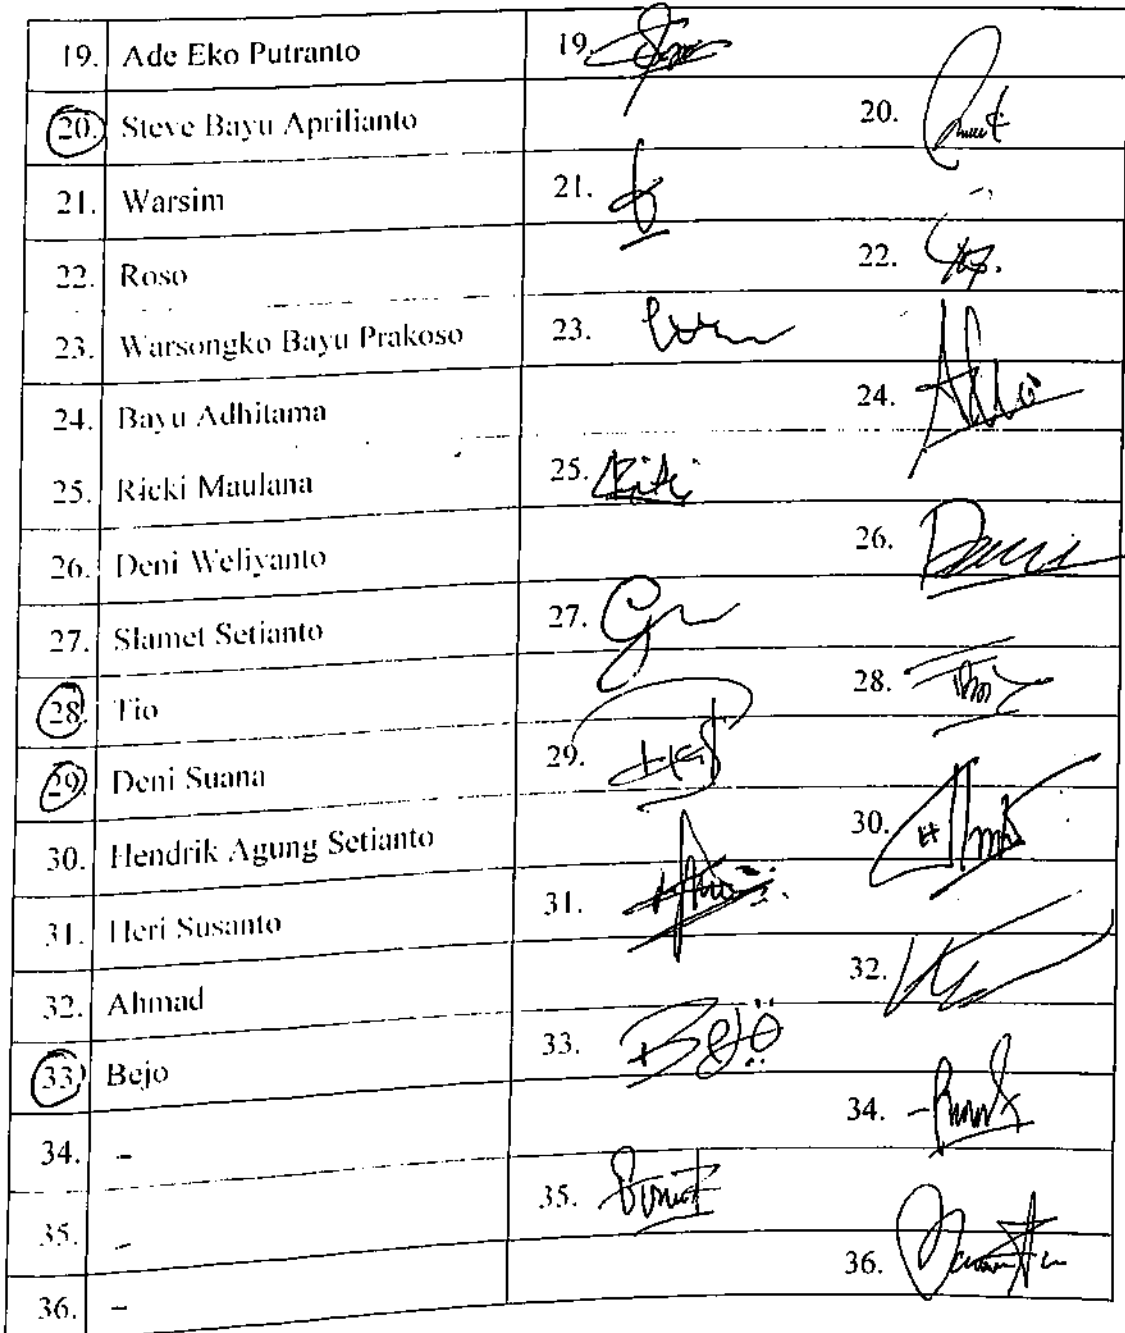 19. Ade Eko Putranto 19.
20. Steve Bayu Aprilianto 20.
21. Warsim 21.
22. Roso 22.
23. Warsongko Bayu Prakoso 23.
24. Bayu Adhitama 24.
25. Ricki Maulana 25.
26. Deni Weliyanto 26.
27. Slamet Setianto 27.
28. Tio 28.
29. Deni Suana 29.
30. Hendrik Agung Setianto 30.
31. Heri Susanto 31.
32. Ahmad 32.
33. Bejo 33. Bejo
34. - 34.
35. - 35.
36. - 36.